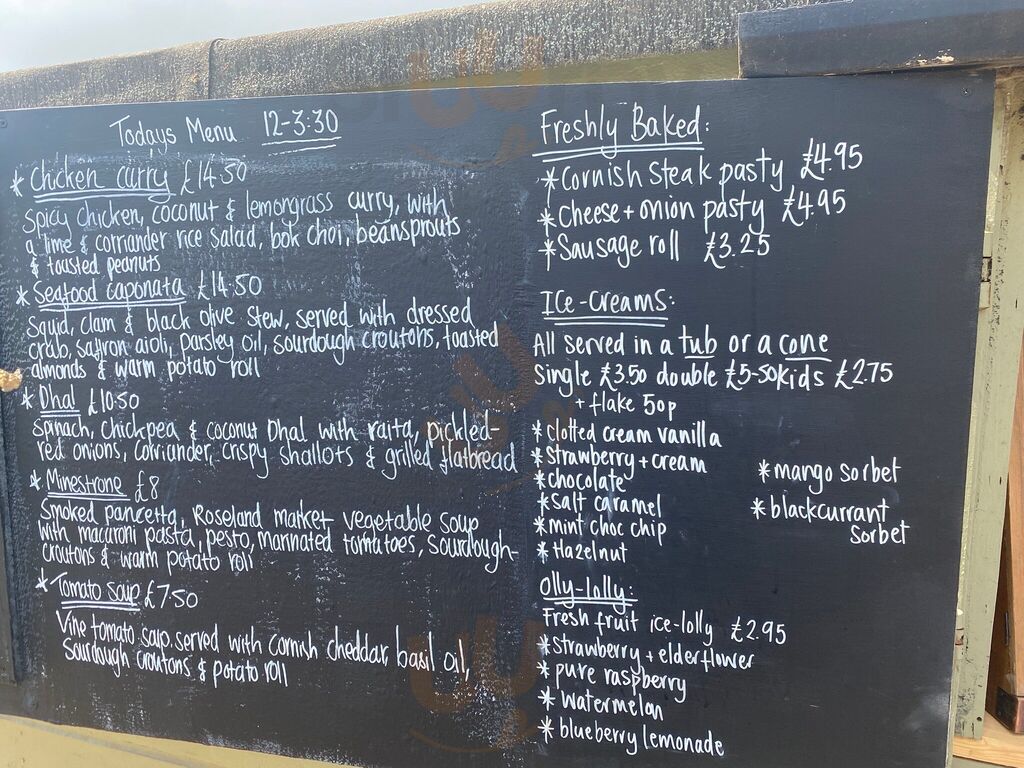 Todays Menu 12-3:30
* Chicken curry £14.50
Spicy chicken, coconut & lemongrass curry, with
a lime & corriander rice salad, bok choi, beansprouts
& toasted peanuts
* Seafood caponata £14.50
Squid, clam & black olive stew, served with dressed
crab, saffron aioli, parsley oil, sourdough croutons, toasted
almonds & warm potato roll
* Dhal £10.50
Spinach, chickpea & coconut Dhal with raita, pickled-
red onions, corriander, crispy shallots & grilled flatbread
* Minestrone £8
Smoked pancetta, Roseland market vegetable soup
with macaroni pasta, pesto, marinated tomatoes, sourdough-
croutons & warm potato roll
* Tomato soup £7.50
Vine tomato soup served with cornish cheddar, basil oil,
sourdough croutons & potato roll
Freshly Baked:
* Cornish steak pasty £4.95
* cheese + onion pasty £4.95
* Sausage roll £3.25
Ice-creams:
All served in a tub or a cone
Single £3.50 double £5-50 kids £2.75
+ flake 50p
* clotted cream vanilla
* strawberry + cream
* chocolate
* salt caramel
* mint choc chip
* Hazelnut
* mango sorbet
* blackcurrant
sorbet
Olly-lolly:
Fresh fruit ice-lolly £2.95
* strawberry + elderflower
* pure raspberry
* watermelon
* blueberry lemonade